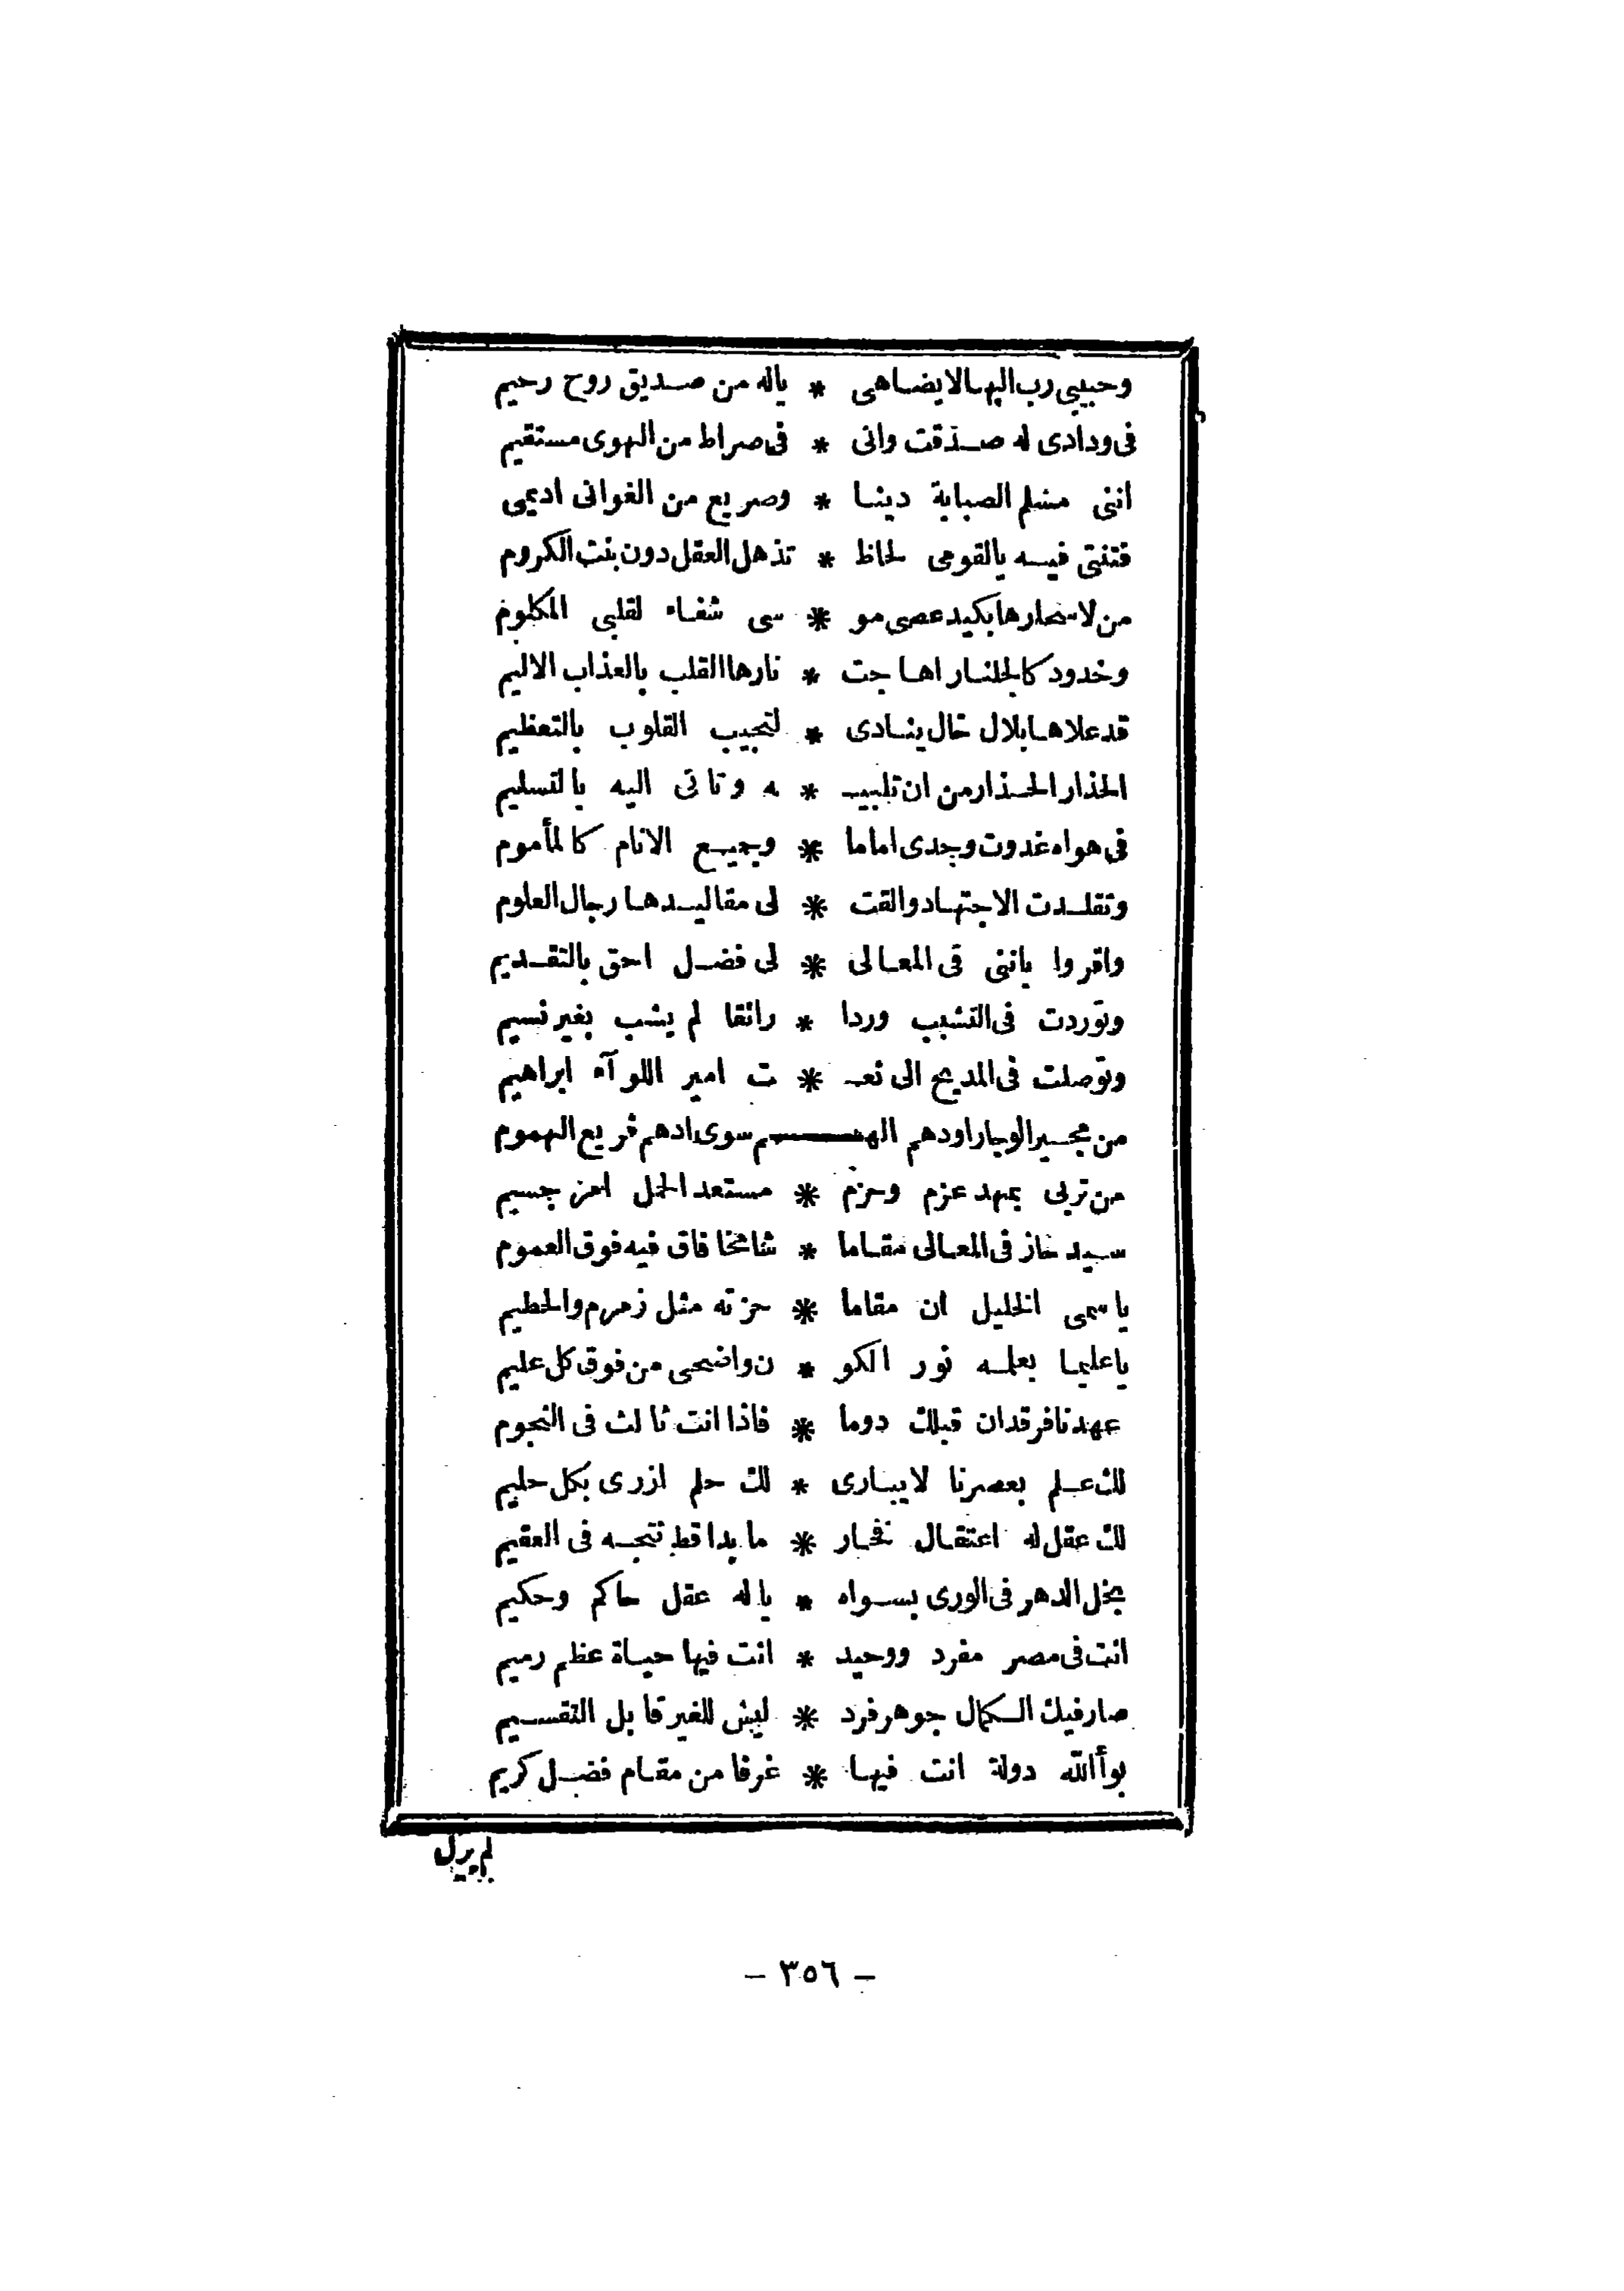 وحبيبى رب البها لايضاهى * ياله من صديق روح رحيم
فى ودادى له صدقت وانى * فى صراط من الهوى مستقيم
اننى مسلم الصبابة دينا * وصريع من الغوانى اديمى
فتنتى فيه يالقومى لحاظ * تذهل العقل دون بنت الكروم
من لاسحارها بكيد عصى مو * سى شفاء لقلبى المكلوم
وخدود كالجلنار اهاجت * نارها القلب بالعذاب الاليم
قد علاها بلال خال ينادى * لتجيب القلوب بالتعظيم
الحذار الحذار من ان تلبيـ * ـه وتاتى اليه بالتسليم
فى هواه غدوت وجدى اماما * وجميع الانام كالمأموم
وتقلدت الاجتهاد والقت * لى مقاليدها رجال العلوم
واقروا باننى فى المعالى * لى فضل احق بالتقديم
وتوردت فى التشبب وردا * رائقا لم يشب بغير نسيم
وتوصلت فى المديح الى نعـ * ت امير اللوآء ابراهيم
من مجير الوجار اودهم الهـــــم سوى ادهم قريع الهموم
من تربى بمهد عزم وحزم * مستعد لحل امر جسيم
سيد حاز فى المعالى مقاما * شامخا فاق فيه فوق العموم
ياسمى الخليل ان مقاما * حزته مثل زمزم والحطيم
ياعليما بعلمه نور الكو * ن واضحى من فوق كل عليم
عهدنا فرقدان قبلك دوما * فاذا انت ثالث فى النجوم
لك علم بعصرنا لايبارى * لك حلم ازرى بكل حليم
لك عقل له اعتقال فخار * مابدا قط نتجه فى العقيم
بخل الدهر فى الورى بسواه * ياله عقل حاكم وحكيم
انت فى مصر مفرد ووحيد * انت فيها حياة عظم رميم
صار فيك الكمال جوهر فرد * ليس للغير قابل التقسيم
بوأ الله دولة انت فيها * غرفا من مقام فضل كريم
لم يزل
- ٣٥٦ -